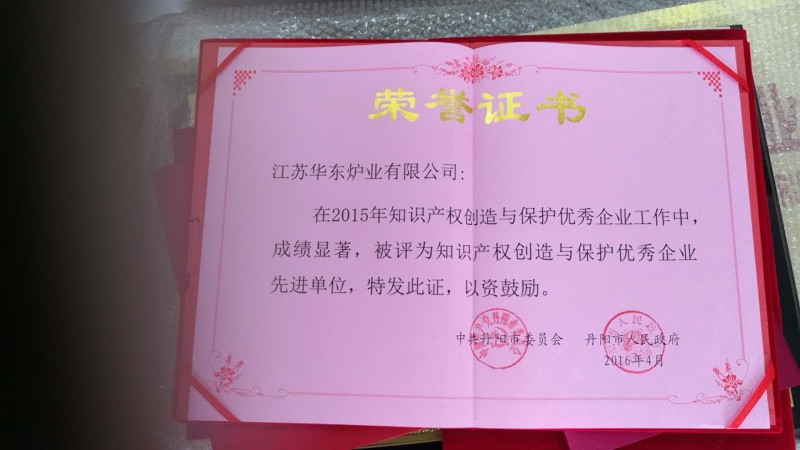 荣誉证书
江苏华东炉业有限公司:
在2015年知识产权创造与保护优秀企业工作中，
成绩显著，被评为知识产权创造与保护优秀企业
先进单位，特发此证，以资鼓励。
中共丹阳市委员会 丹阳市人民政府
2016年4月